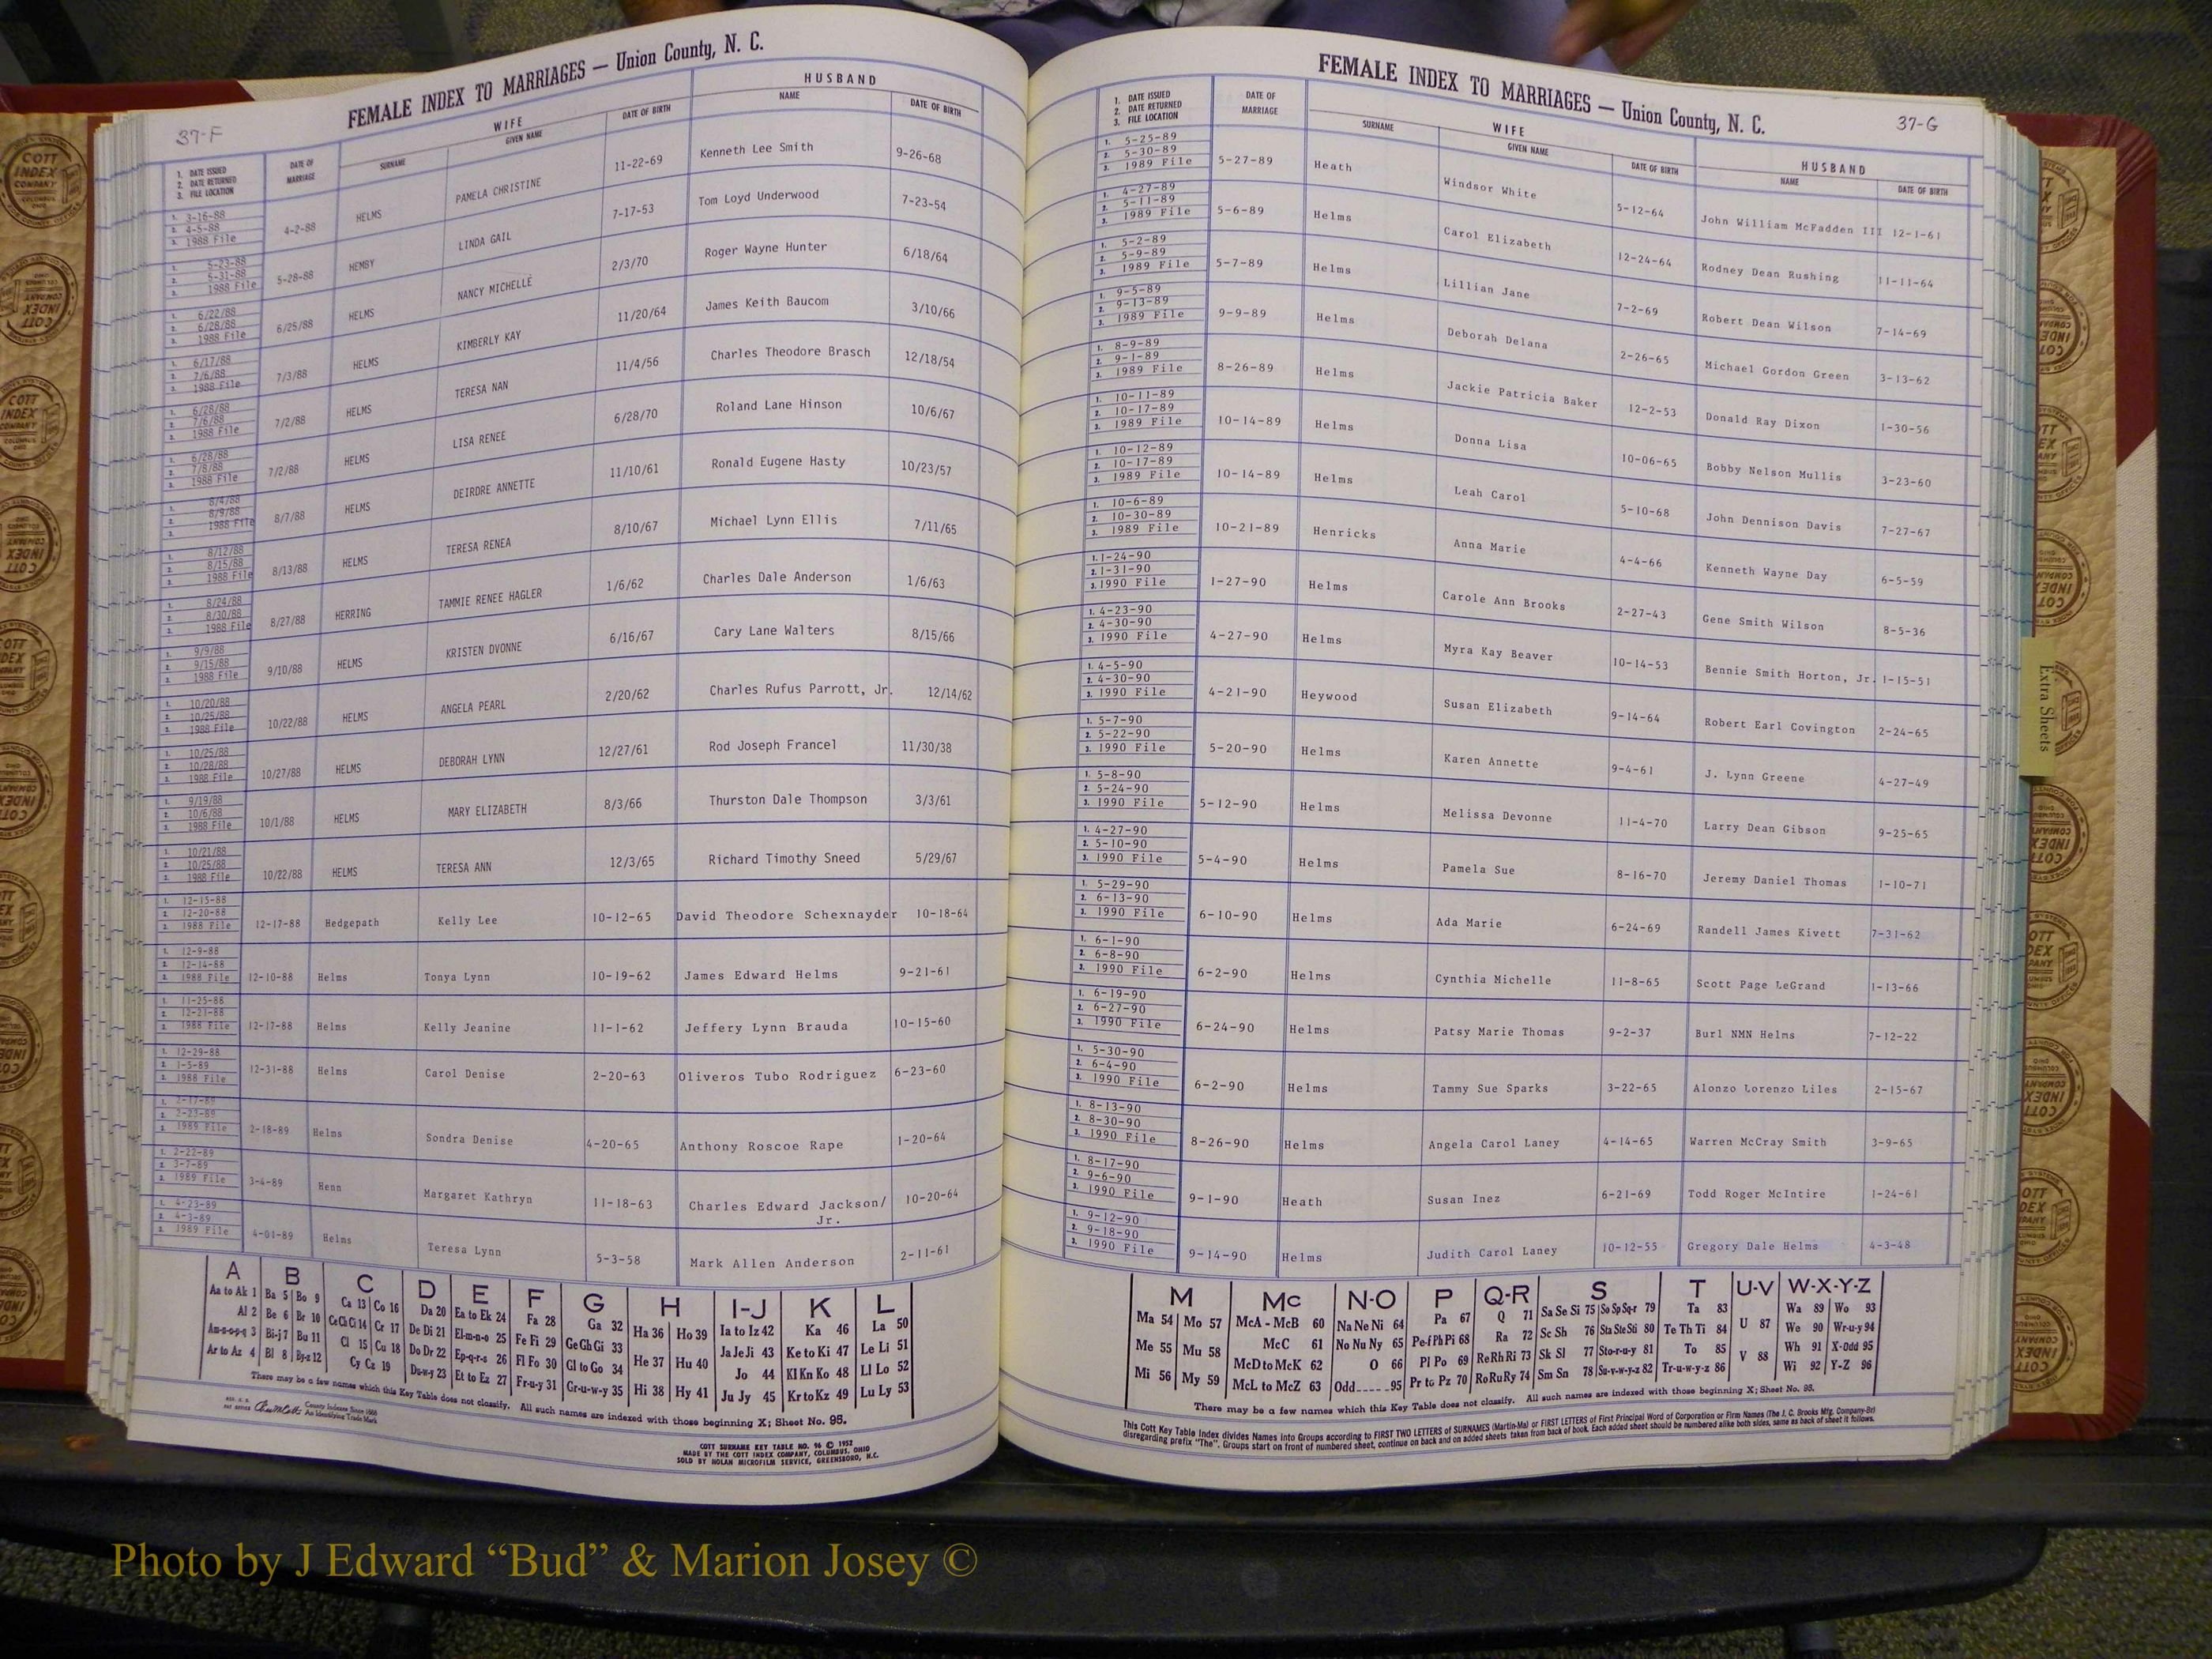 37-F
FEMALE INDEX TO MARRIAGES — Union County, N. C.
1. DATE ISSUED 2. DATE RETURNED 3. FILE LOCATION
DATE OF MARRIAGE
WIFE
SURNAME GIVEN NAME DATE OF BIRTH
HUSBAND
NAME DATE OF BIRTH
1. 3-16-88 2. 4-5-88 3. 1988 File 4-2-88 HELMS PAMELA CHRISTINE 11-22-69 Kenneth Lee Smith 9-26-68
1. 5-23-88 2. 5-31-88 3. 1988 File 5-28-88 HEMBY LINDA GAIL 7-17-53 Tom Loyd Underwood 7-23-54
1. 6/22/88 2. 6/28/88 3. 1988 File 6/25/88 HELMS NANCY MICHELLE 2/3/70 Roger Wayne Hunter 6/18/64
1. 6/17/88 2. 7/6/88 3. 1988 File 7/3/88 HELMS KIMBERLY KAY 11/20/64 James Keith Baucom 3/10/66
1. 6/28/88 2. 7/6/88 3. 1988 File 7/2/88 HELMS TERESA NAN 11/4/56 Charles Theodore Brasch 12/18/54
1. 6/28/88 2. 7/8/88 3. 1988 File 7/2/88 HELMS LISA RENEE 6/28/70 Roland Lane Hinson 10/6/67
1. 8/4/88 2. 8/9/88 3. 1988 File 8/7/88 HELMS DEIRDRE ANNETTE 11/10/61 Ronald Eugene Hasty 10/23/57
1. 8/12/88 2. 8/15/88 3. 1988 File 8/13/88 HELMS TERESA RENEA 8/10/67 Michael Lynn Ellis 7/11/65
1. 8/24/88 2. 8/30/88 3. 1988 File 8/27/88 HERRING TAMMIE RENEE HAGLER 1/6/62 Charles Dale Anderson 1/6/63
1. 9/9/88 2. 9/15/88 3. 1988 File 9/10/88 HELMS KRISTEN DVONNE 6/16/67 Cary Lane Walters 8/15/66
1. 10/20/88 2. 10/25/88 3. 1988 File 10/22/88 HELMS ANGELA PEARL 2/20/62 Charles Rufus Parrott, Jr. 12/14/62
1. 10/25/88 2. 10/28/88 3. 1988 File 10/27/88 HELMS DEBORAH LYNN 12/27/61 Rod Joseph Francel 11/30/38
1. 9/19/88 2. 10/6/88 3. 1988 File 10/1/88 HELMS MARY ELIZABETH 8/3/66 Thurston Dale Thompson 3/3/61
1. 10/21/88 2. 10/25/88 3. 1988 File 10/22/88 HELMS TERESA ANN 12/3/65 Richard Timothy Sneed 5/29/67
1. 12-15-88 2. 12-20-88 3. 1988 File 12-17-88 Hedgepath Kelly Lee 10-12-65 David Theodore Schexnayder 10-18-64
1. 12-9-88 2. 12-14-88 3. 1988 File 12-10-88 Helms Tonya Lynn 10-19-62 James Edward Helms 9-21-61
1. 11-25-88 2. 12-21-88 3. 1988 File 12-17-88 Helms Kelly Jeanine 11-1-62 Jeffery Lynn Brauda 10-15-60
1. 12-29-88 2. 1-5-89 3. 1988 File 12-31-88 Helms Carol Denise 2-20-63 Oliveros Tubo Rodriguez 6-23-60
1. 2-17-89 2. 2-23-89 3. 1989 File 2-18-89 Helms Sondra Denise 4-20-65 Anthony Roscoe Rape 1-20-64
1. 2-22-89 2. 3-7-89 3. 1989 File 3-4-89 Henn Margaret Kathryn 11-18-63 Charles Edward Jackson/ Jr. 10-20-64
1. 4-23-89 2. 4-3-89 3. 1989 File 4-01-89 Helms Teresa Lynn 5-3-58 Mark Allen Anderson 2-11-61
A B C D E F G H I-J K L
Aa to Ak 1 Ba 5 Bo 9 Ca 13 Co 16 Da 20 Ea to Ek 24 Fa 28 Ga 32 Ha 36 Ho 39 Ia to Iz 42 Ka 46 La 50
Al 2 Be 6 Br 10 Ce Ch Ci 14 Cr 17 De Di 21 El-m-n-o 25 Fe Fi 29 Ge Gh Gi 33 He 37 Hu 40 Ja Je Ji 43 Ke to Ki 47 Le Li 51
Am-n-o-p-q 3 Bi-j 7 Bu 11 Cl 15 Cu 18 Do Dr 22 Ep-q-r-s 26 Fl Fo 30 Gl to Go 34 Hi 38 Hy 41 Jo 44 Kl Kn Ko 48 Ll Lo 52
Ar to Az 4 Bl 8 By-z 12 Cy Cz 19 Du-w-y 23 Et to Ez 27 Fr-u-y 31 Gr-u-w-y 35 Ju Jy 45 Kr to Kz 49 Lu Ly 53
There may be a few names which this Key Table does not classify. All such names are indexed with those beginning X; Sheet No. 96.
County Indexes Since 1888
An Identifying Trade Mark
COTT SURNAME KEY TABLE NO. 96 © 1952
MADE BY THE COTT INDEX COMPANY, COLUMBUS, OHIO
SOLD BY NOLAN MICROFILM SERVICE, GREENSBORO, N.C.
FEMALE INDEX TO MARRIAGES — Union County, N. C.
37-G
1. DATE ISSUED 2. DATE RETURNED 3. FILE LOCATION
DATE OF MARRIAGE
WIFE
SURNAME GIVEN NAME DATE OF BIRTH
HUSBAND
NAME DATE OF BIRTH
1. 5-25-89 2. 5-30-89 3. 1989 File 5-27-89 Heath Windsor White 5-12-64 John William McFadden III 12-1-61
1. 4-27-89 2. 5-11-89 3. 1989 File 5-6-89 Helms Carol Elizabeth 12-24-64 Rodney Dean Rushing 11-11-64
1. 5-2-89 2. 5-9-89 3. 1989 File 5-7-89 Helms Lillian Jane 7-2-69 Robert Dean Wilson 7-14-69
1. 9-5-89 2. 9-13-89 3. 1989 File 9-9-89 Helms Deborah Delana 2-26-65 Michael Gordon Green 3-13-62
1. 8-9-89 2. 9-1-89 3. 1989 File 8-26-89 Helms Jackie Patricia Baker 12-2-53 Donald Ray Dixon 1-30-56
1. 10-11-89 2. 10-17-89 3. 1989 File 10-14-89 Helms Donna Lisa 10-06-65 Bobby Nelson Mullis 3-23-60
1. 10-12-89 2. 10-17-89 3. 1989 File 10-14-89 Helms Leah Carol 5-10-68 John Dennison Davis 7-27-67
1. 10-6-89 2. 10-30-89 3. 1989 File 10-21-89 Henricks Anna Marie 4-4-66 Kenneth Wayne Day 6-5-59
1. 1-24-90 2. 1-31-90 3. 1990 File 1-27-90 Helms Carole Ann Brooks 2-27-43 Gene Smith Wilson 8-5-36
1. 4-23-90 2. 4-30-90 3. 1990 File 4-27-90 Helms Myra Kay Beaver 10-14-53 Bennie Smith Horton, Jr. 1-15-51
1. 4-5-90 2. 4-30-90 3. 1990 File 4-21-90 Heywood Susan Elizabeth 9-14-64 Robert Earl Covington 2-24-65
1. 5-7-90 2. 5-22-90 3. 1990 File 5-20-90 Helms Karen Annette 9-4-61 J. Lynn Greene 4-27-49
1. 5-8-90 2. 5-24-90 3. 1990 File 5-12-90 Helms Melissa Devonne 11-4-70 Larry Dean Gibson 9-25-65
1. 4-27-90 2. 5-10-90 3. 1990 File 5-4-90 Helms Pamela Sue 8-16-70 Jeremy Daniel Thomas 1-10-71
1. 5-29-90 2. 6-13-90 3. 1990 File 6-10-90 Helms Ada Marie 6-24-69 Randell James Kivett 7-31-62
1. 6-1-90 2. 6-8-90 3. 1990 File 6-2-90 Helms Cynthia Michelle 11-8-65 Scott Page LeGrand 1-13-66
1. 6-19-90 2. 6-27-90 3. 1990 File 6-24-90 Helms Patsy Marie Thomas 9-2-37 Burl NMN Helms 7-12-22
1. 5-30-90 2. 6-4-90 3. 1990 File 6-2-90 Helms Tammy Sue Sparks 3-22-65 Alonzo Lorenzo Liles 2-15-67
1. 8-13-90 2. 8-30-90 3. 1990 File 8-26-90 Helms Angela Carol Laney 4-14-65 Warren McCray Smith 3-9-65
1. 8-17-90 2. 9-6-90 3. 1990 File 9-1-90 Heath Susan Inez 6-21-69 Todd Roger McIntire 1-24-61
1. 9-12-90 2. 9-18-90 3. 1990 File 9-14-90 Helms Judith Carol Laney 10-12-55 Gregory Dale Helms 4-3-48
M Mc N-O P Q-R S T U-V W-X-Y-Z
Ma 54 Mo 57 McA - McB 60 Na Ne Ni 64 Pa 67 Q 71 Sa Se Si 75 So Sp Sq-r 79 Ta 83 U 87 Wa 89 Wo 93
Me 55 Mu 58 McC 61 No Nu Ny 65 Pe-f Ph Pi 68 Ra 72 Sc Sh 76 Sta Ste Sti 80 Te Th Ti 84 V 88 We 90 Wr-u-y 94
Mi 56 My 59 McD to McK 62 O 66 Pl Po 69 Re Rh Ri 73 Sk Sl 77 Sto-r-u-y 81 To 85 Wh 91 X-Odd 95
McL to McZ 63 Odd 95 Pr to Pz 70 Ro Ru Ry 74 Sm Sn 78 Su-v-w-y-z 82 Tr-u-w-y-z 86 Wi 92 Y-Z 96
There may be a few names which this Key Table does not classify. All such names are indexed with those beginning X; Sheet No. 95.
This Cott Key Table Index divides Names into Groups according to FIRST TWO LETTERS of SURNAMES (Martin-Ma) or FIRST LETTERS of First Principal Word of Corporation or Firm Names (The J. C. Brooks Mfg. Company-Br)
disregarding prefix "The". Groups start on front of numbered sheet, continue on back and on added sheets taken from back of book. Each added sheet should be numbered alike both sides, same as back of sheet it follows.
Extra Sheets
COTT INDEX COMPANY
Photo by J Edward “Bud” & Marion Josey ©